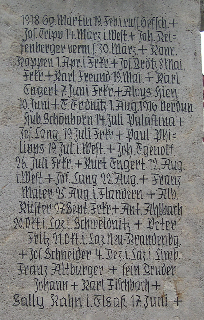 1918 Gg. Martin 19. Febr. i. russ. Gefsch. +
Jos. Tripp 14. März i. West + Joh. Rei-
zenberger verm. s. 30. März + Rann.
Rappen 1. Apr. i. Frkr. + Jos. Brötz 8. Mai
Frkr. + Karl Freund 19. Mai + Karl
Engert 7. Juni Frkr. + Aloys Gien
20. Juni + T. Trönitz 1. Aug. 1916 Verdun
Hub. Schönborn 14. Juli Palästina +
Jos. Lang 19. Juli Frkr. + Paul Phi-
lipps 19. Juli i. West. + Joh. Egenolf
26. Juli Frkr. + Kurt Engert 19. Aug.
i. West + Jos. Lang 22. Aug. + Franz
Maier 25. Aug. i. Flandern + Alb.
Küster 17. Sept. Frkr. + Ant. Ahlbach
20. Okt. i. Laz. Schwelbnitz + Peter
Fritz 31. Okt. i. Laz. Neu-Brandenbg.
+ Jos. Schneider 4. Dez. i. Laz. i. Limb.
Franz Altburger + sein Bruder
Johann + Karl Fischbach +
Sally Kahn i. Elsaß 17. Juli +